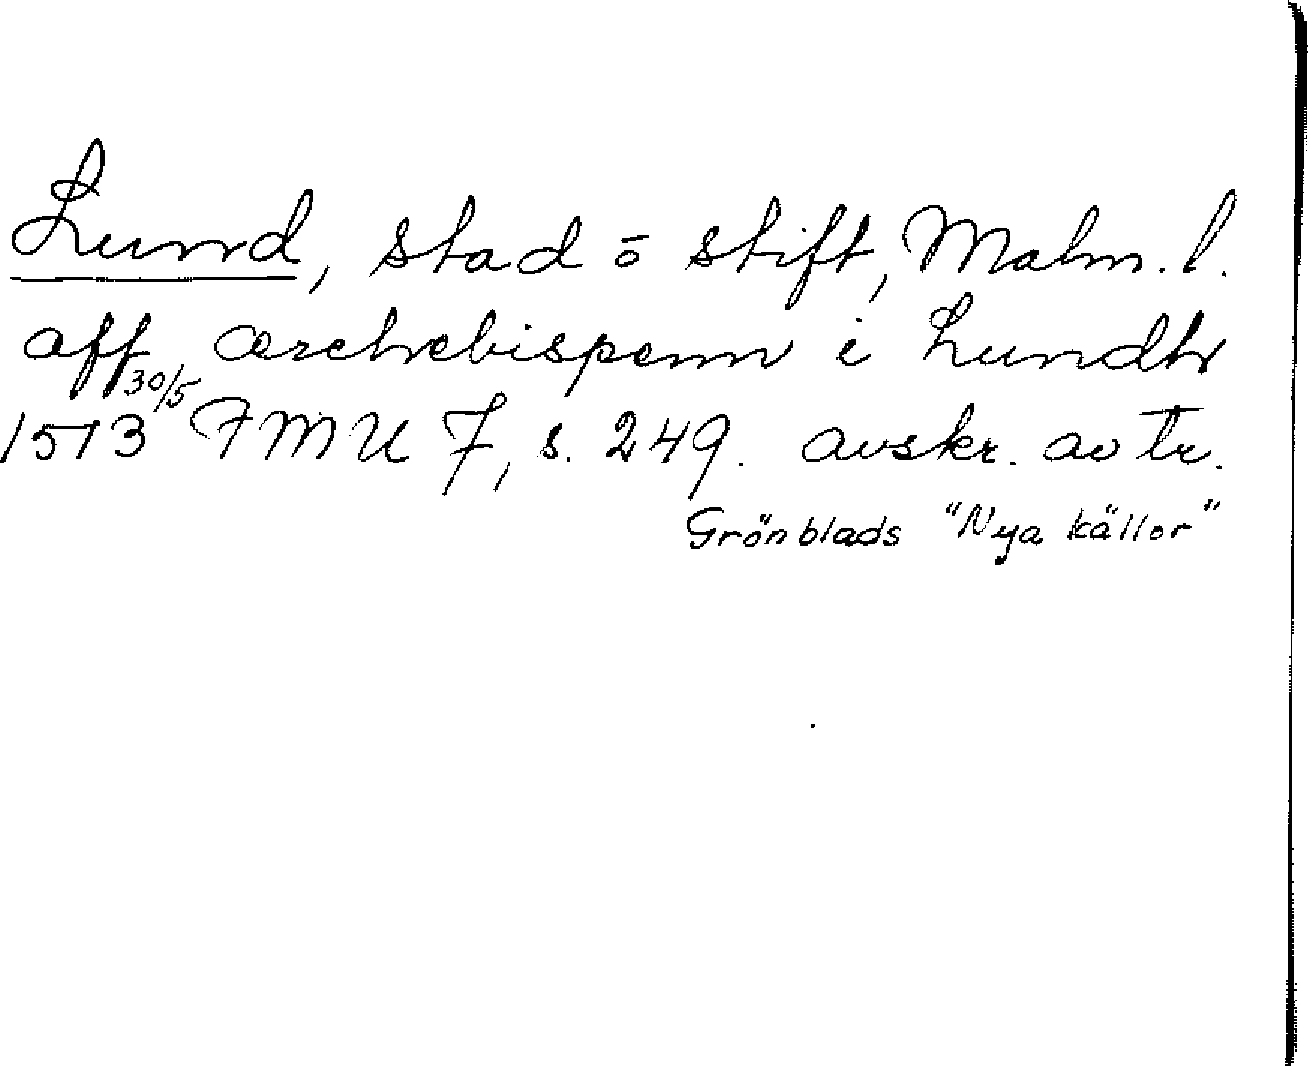 Lund, stad ō stift, Malm. l.
aff ærchebispenn i Lundh
1513 30/5 FMU 7, s. 249. avskr. av tr.
Grönblads "Nya källor"